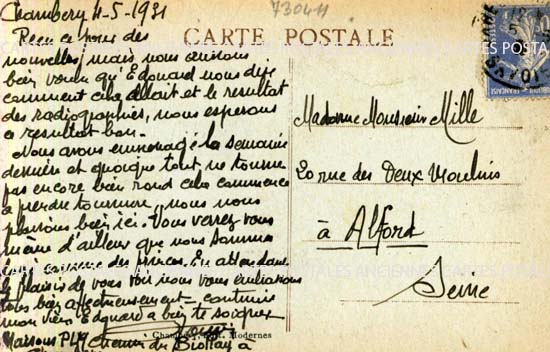 Chambéry 4-5-1931
73041
Reçu ce jour des
nouvelles, mais nous aurions
bien voulu qu'Edouard nous dise
comment cela allait et le resultat
des radiographies, nous esperons
ce resultat bon.
Nous avons emmenagé la semaine
dernière et quoique tout ne tourne
pas encore bien rond cela commence
à prendre tournure, nous nous
plaisons bien ici. Vous verrez vous
même d'ailleur que nous sommes
comme des princes. En attendant
le plaisir de vous voir nous vous embrassons
tous bien affectueusement - continue
mon vieux Edouard a bien te soigner
Chemin du Biollay à
CARTE POSTALE
Madame Monsieur Mille
20 rue des Deux Moulins
à Alfort
Seine
Modernes